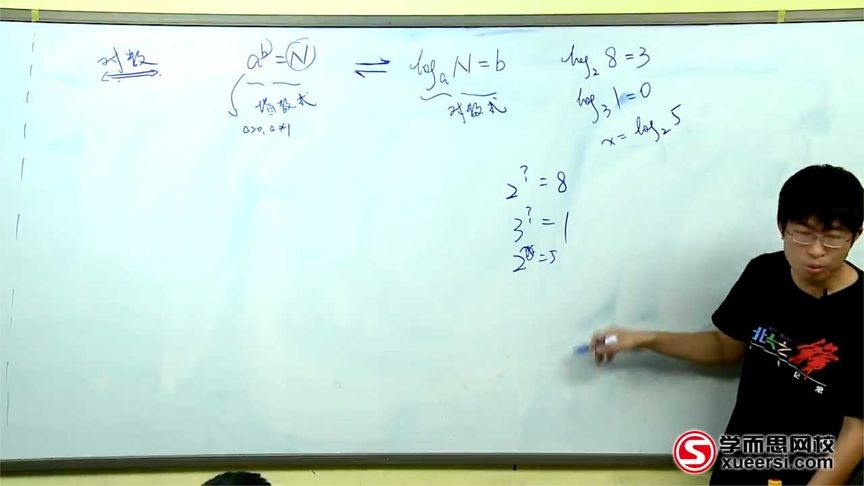 对数
a^b=N ⇌ log_a N=b
指数式
a>0, a≠1
对数式
log_2 8=3
log_3 1=0
x=log_2 5
2^?=8
3^?=1
=5
学而思网校
xueersi.com